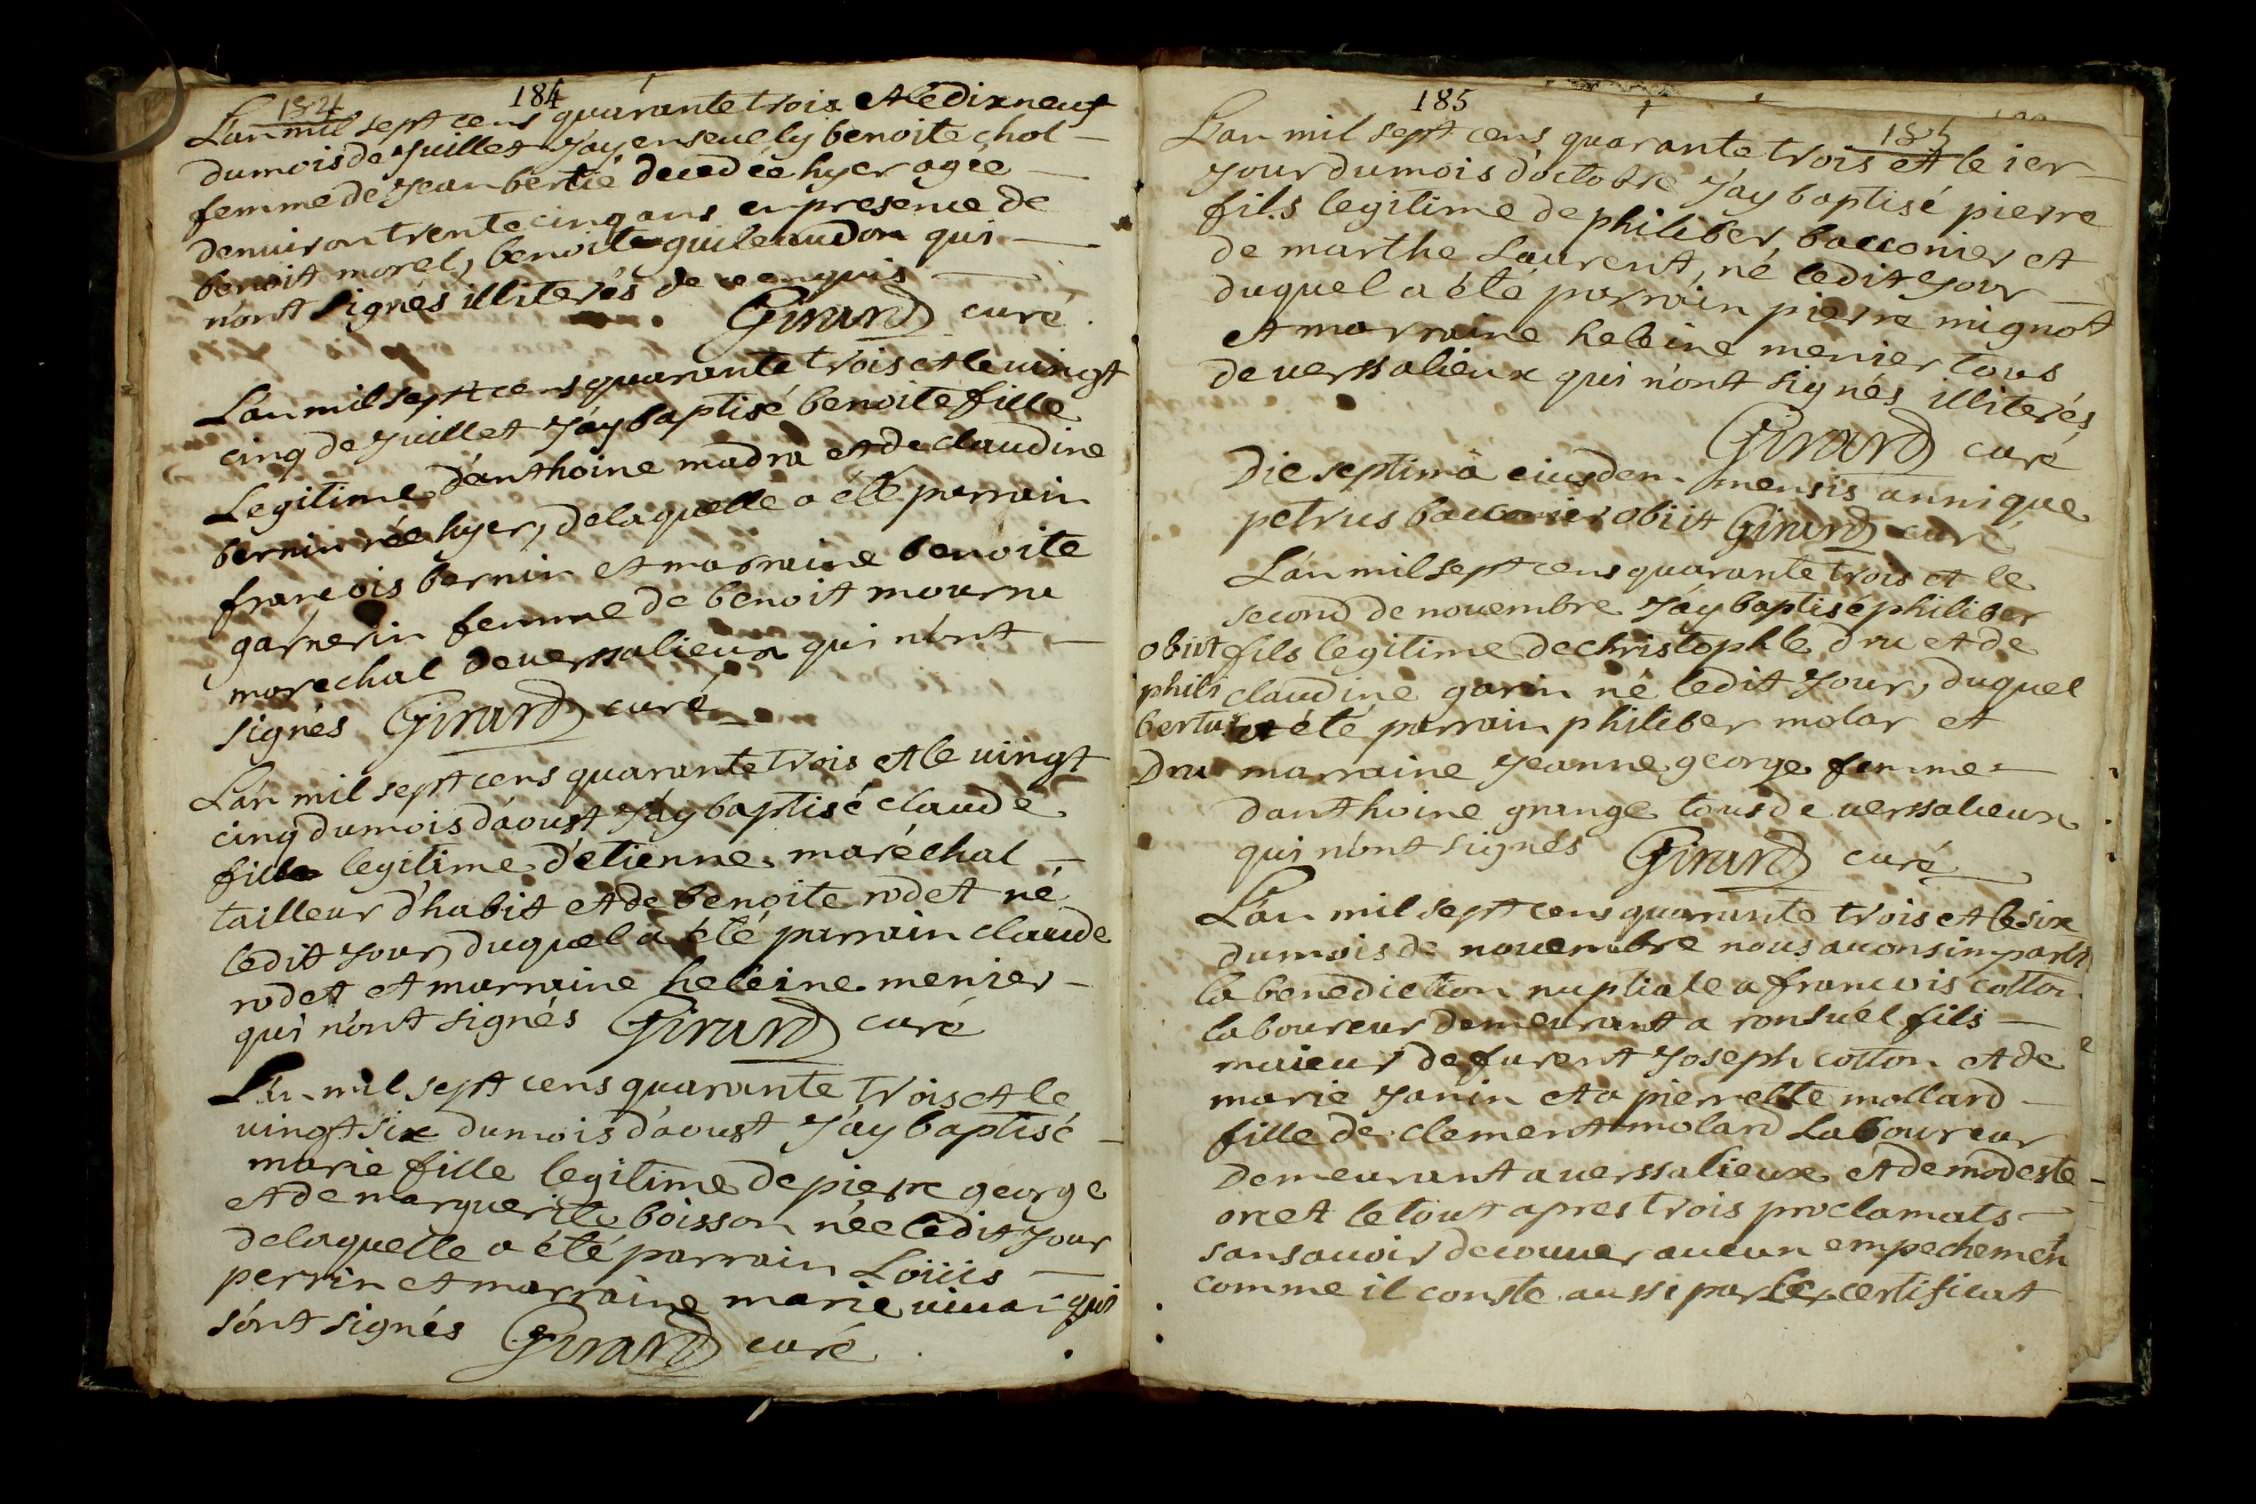 184
184
L'an mil sept cens quarante trois et le dix neuf
du mois de Juillet J'ay enseuely benoite chol
femme de Jean bertié decedée hyer agée
denuiron trente cinq ans en presence de
benoit morel, benoite guileaudon qui
n'ont signés illiterés de ce enquis
Girard curé
L'an mil sept cens quarante trois et le uingt
cinq de Juillet J'ay baptisé benoite fille
Legitime d'anthoine madra et de claudine
bernin née hyer, delaquelle a été parrain
francois bernin et marraine benoite
garnerin femme de benoit mourru
marechal de uerssalieux qui n'ont
signés Girard curé
L'an mil sept cens quarante trois et le uingt
cinq du mois d'aoust J'ay baptisé claude
fille legitime d'etienne maréchal
tailleur d'habit et de benoite rodet né
ledit jour, duquel a été parrain claude
rodet et marraine heleine menier
qui n'ont signés Girard curé
L'an mil sept cens quarante trois et le
uingt six du mois d'aoust J'ay baptisé
marie fille legitime de pierre george
et de marguerite boisson née ledit Jour
delaquelle a été parrain Loüis
perrin et marraine marie uiuai qui
s'ont signés Girard curé
185
185
L'an mil sept cens quarante trois et le ier
Jour du mois d'octobre J'ay baptisé pierre
fils legitime de philiber bacconier et
de marthe Laurent, né ledit Jour
duquel a été parrain pierre mignot
et marraine heleine menier tous
de uerssalieux qui n'ont signés illiterés
Girard curé
Die septima eiusdem mensis annique
petrus bacconier obiit Girard curé
L'an mil sept cens quarante trois et le
second de nouembre J'ay baptisé philiber
obiit fils legitime de christophle dru et de
phili claudine garin né ledit Jour, duquel
bertus a été parrain philiber molar et
Dru marraine Jeanne george femme
d'anthoine grange tous de uerssalieux
qui n'ont signés Girard curé
L'an mil sept cens quarante trois et le six
du mois de nouembre nous auons imparti
la benediction nuptiale a francois cotton
laboureur demeurant a ronsuél fils
maieur de furent Joseph cotton et de
marie Janin et a pierrette mollard
fille de clement molard Laboureur
Demeurant a uerssalieux et de modeste
orcet le tout apres trois proclamats
sans auoir decouuer aucun empechemen
comme il conste aussi par le certificat